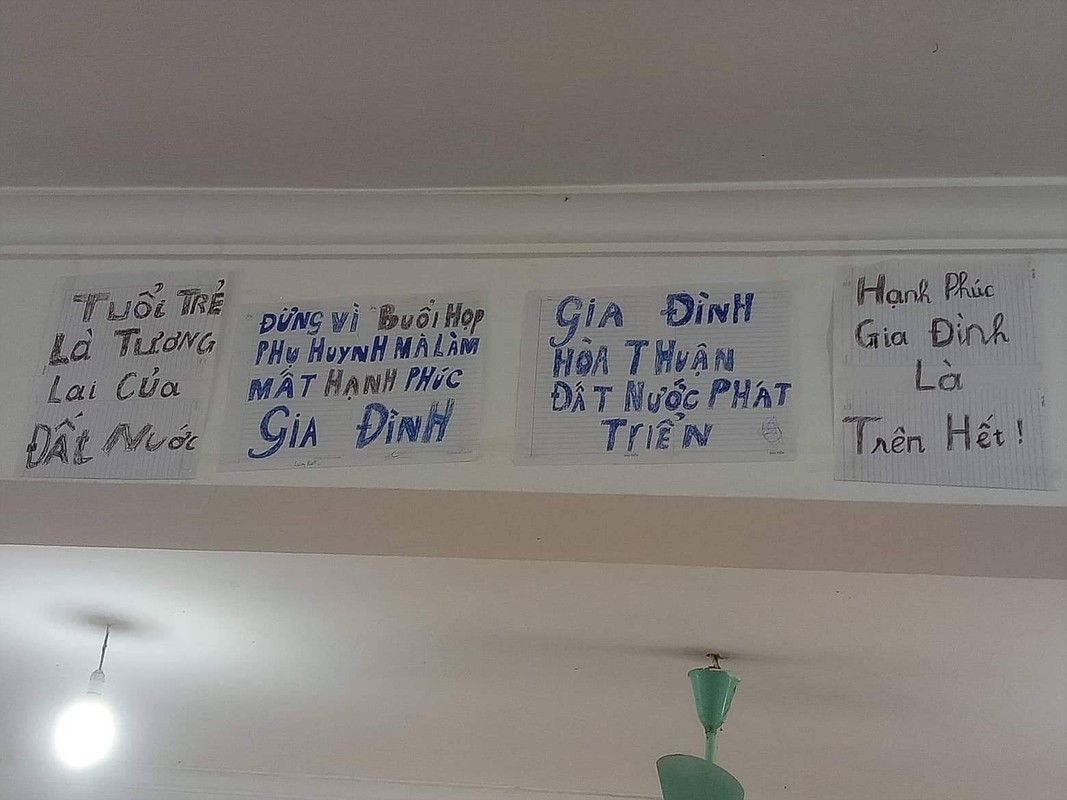 TUỔI TRẺ
Là TƯƠNG
Lai Của
ĐẤt Nước
ĐỪNG VÌ Buổi Họp
PHỤ HUYNH MÀ LÀM
MẤT HẠNH PHÚC
GIA ĐÌNH
GIA ĐÌNH
HÒA THUẬN
ĐẤT NƯỚC PHÁT
TRIỂN
Hạnh Phúc
Gia Đình
Là
Trên Hết !